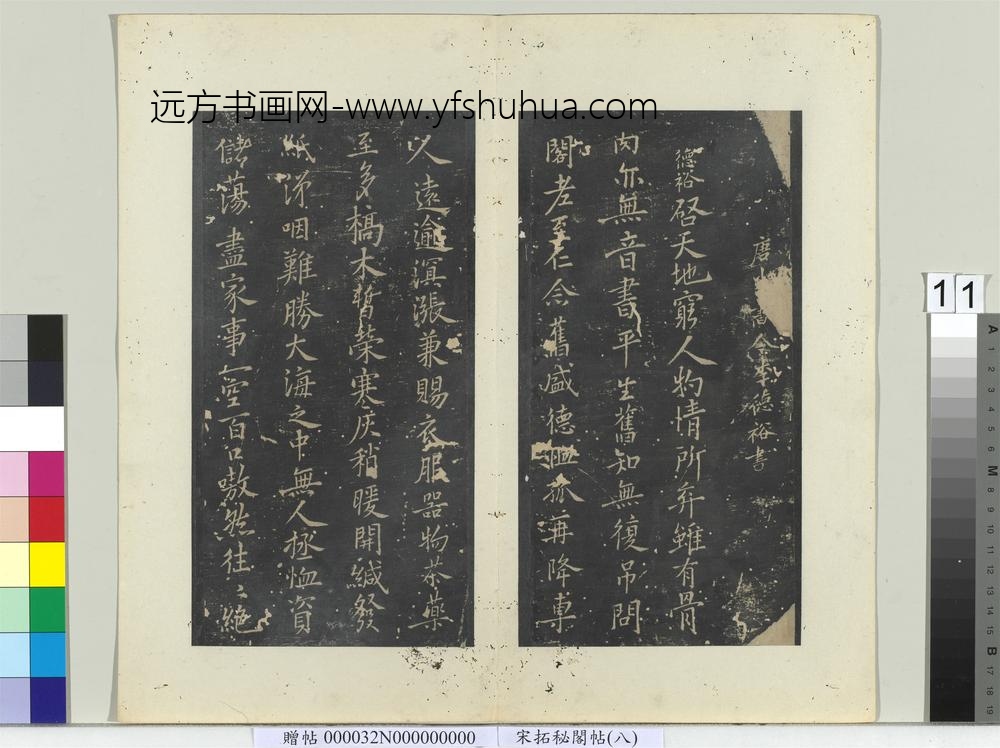 远方书画网-www.yfshuhua.com
唐 書令李德裕書
德裕啓天地窮人物情所弃雖有骨
肉亦無音書平生舊知無復弔問
閣老至仁念舊盛德矜孤再降專
人遠逾溟漲兼賜衣服器物茶藥
至多槁木暫榮寒灰稍暖開緘發
紙涕咽難勝大海之中無人拯恤資
儲蕩盡家事一空百口嗷然往〻絶
11
贈帖 000032N000000000 宋拓秘閣帖(八)
A
1
2
3
4
5
6
M
8
9
10
11
12
13
14
15
B
17
18
19